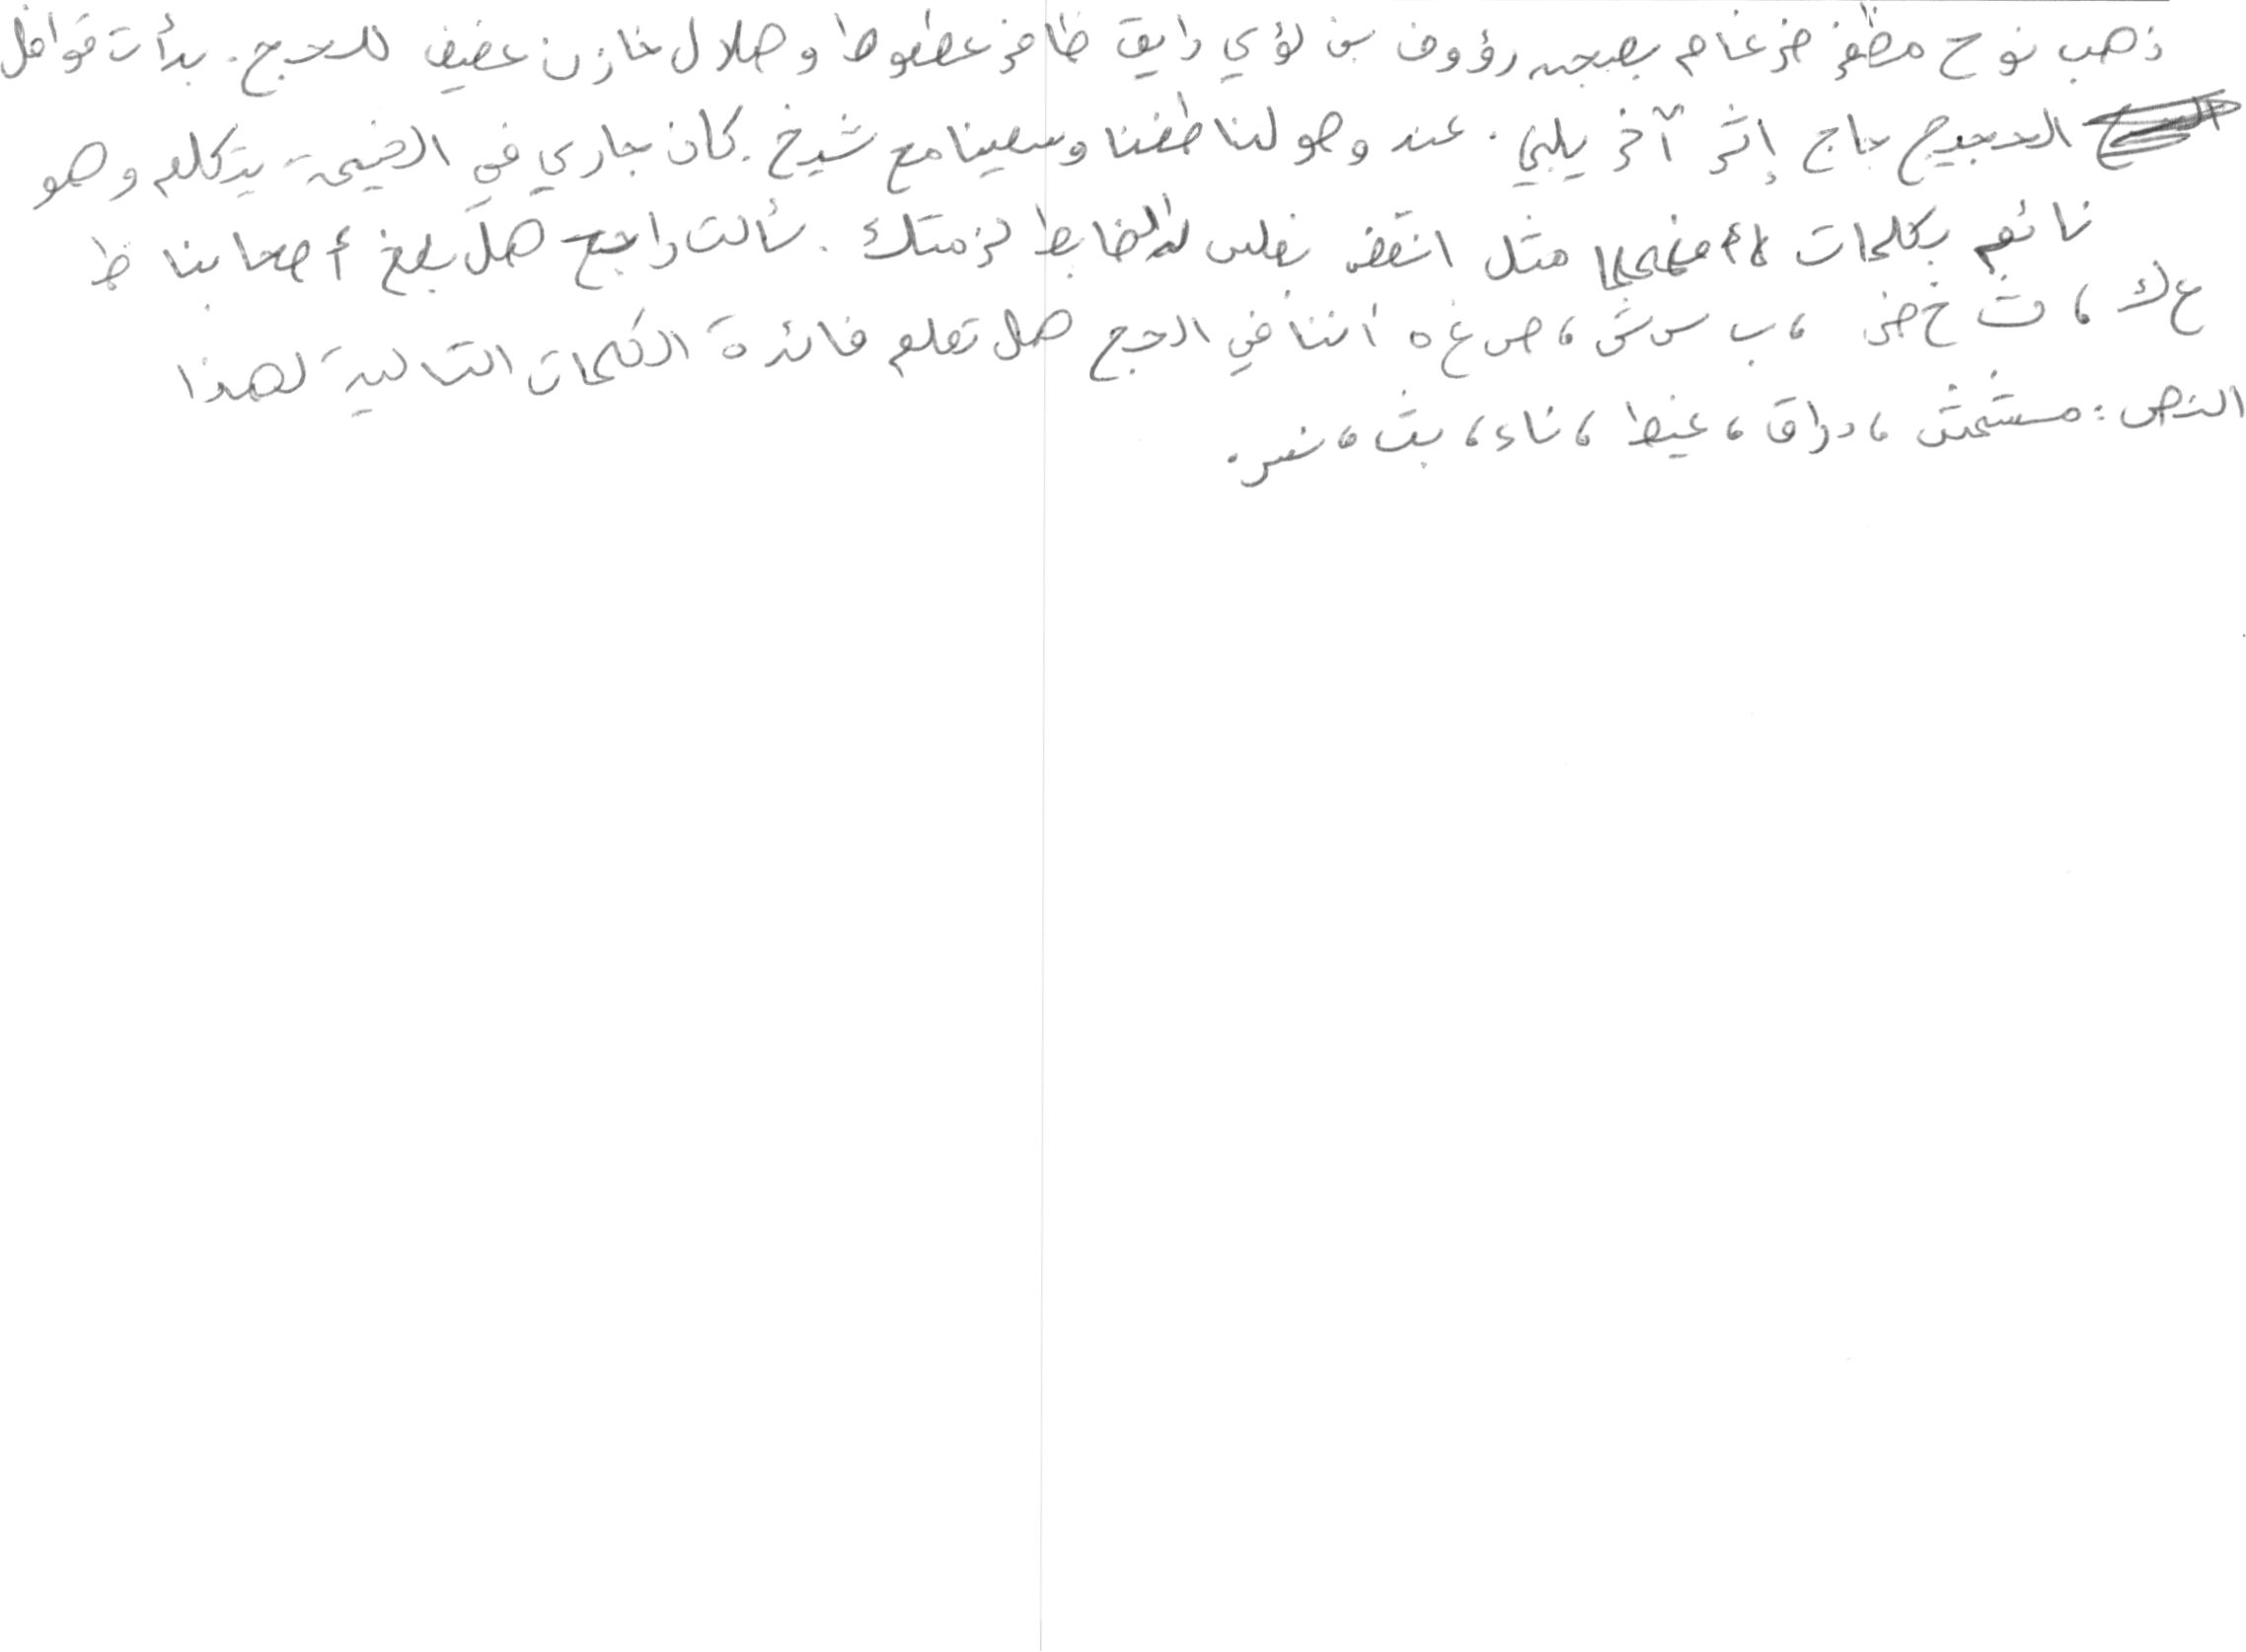 ذهب نوح مظفر ضرغام بصحبه رؤوف بن لؤي رايق ظافر عطعوط وهلال خازن عفيف للحج. بدأت قوافل
الحجيج حاج إثر آخر يلبي. عند وصولنا طفنا وسعينا مع شيخ. كان جاري في الخيمة يتكلم وهو
نائم بكلمات مثل انقض نفلس الضابط لزمتك. سألت راجح هل بلغ أصحابنا ظ
ع ك، ث خ ض، ب س ش، ص غ ه أننا في الحج هل تعلم فائدة الكلمات التالية لهذا
النص: مستمش، دراق، غيط، ناء، بث، نفس.